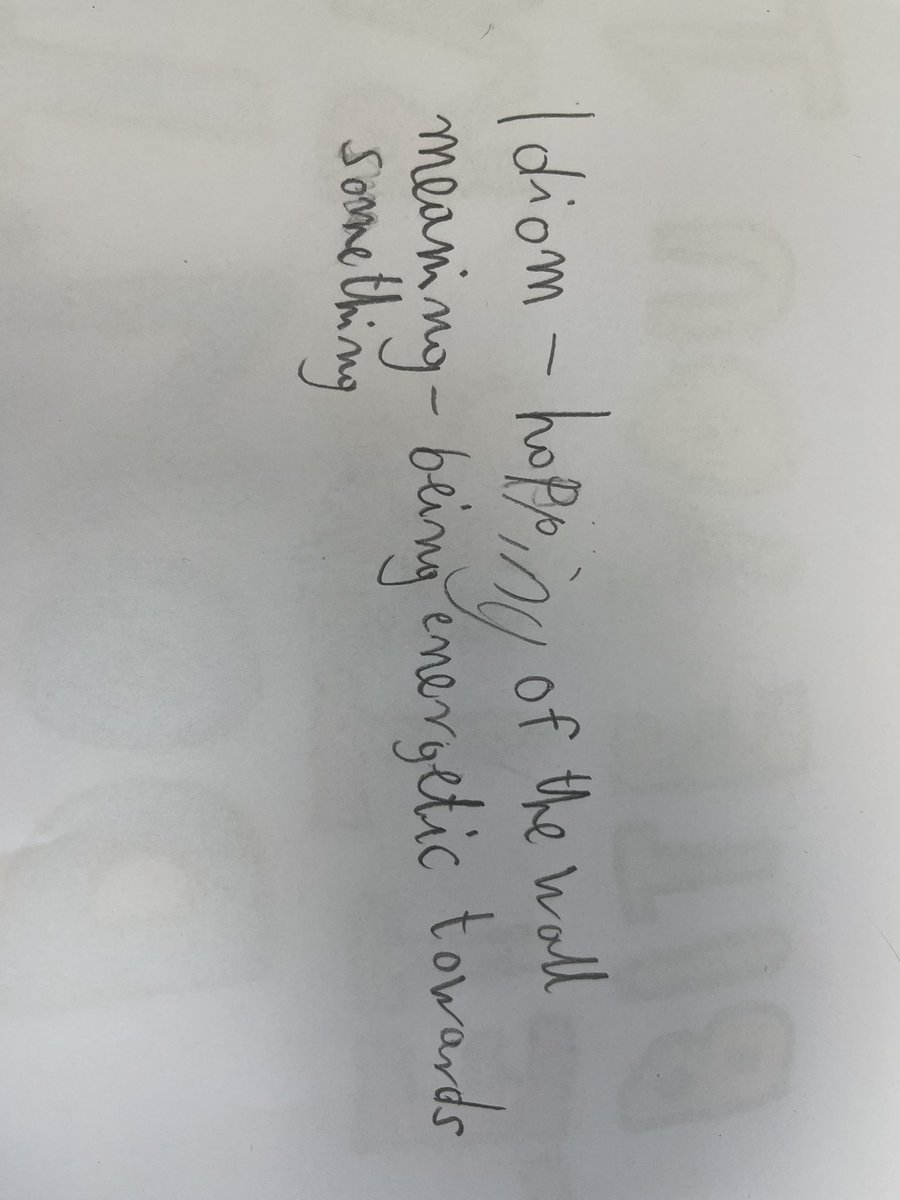 Idiom - hopping of the wall
meaning - being energetic towards
something